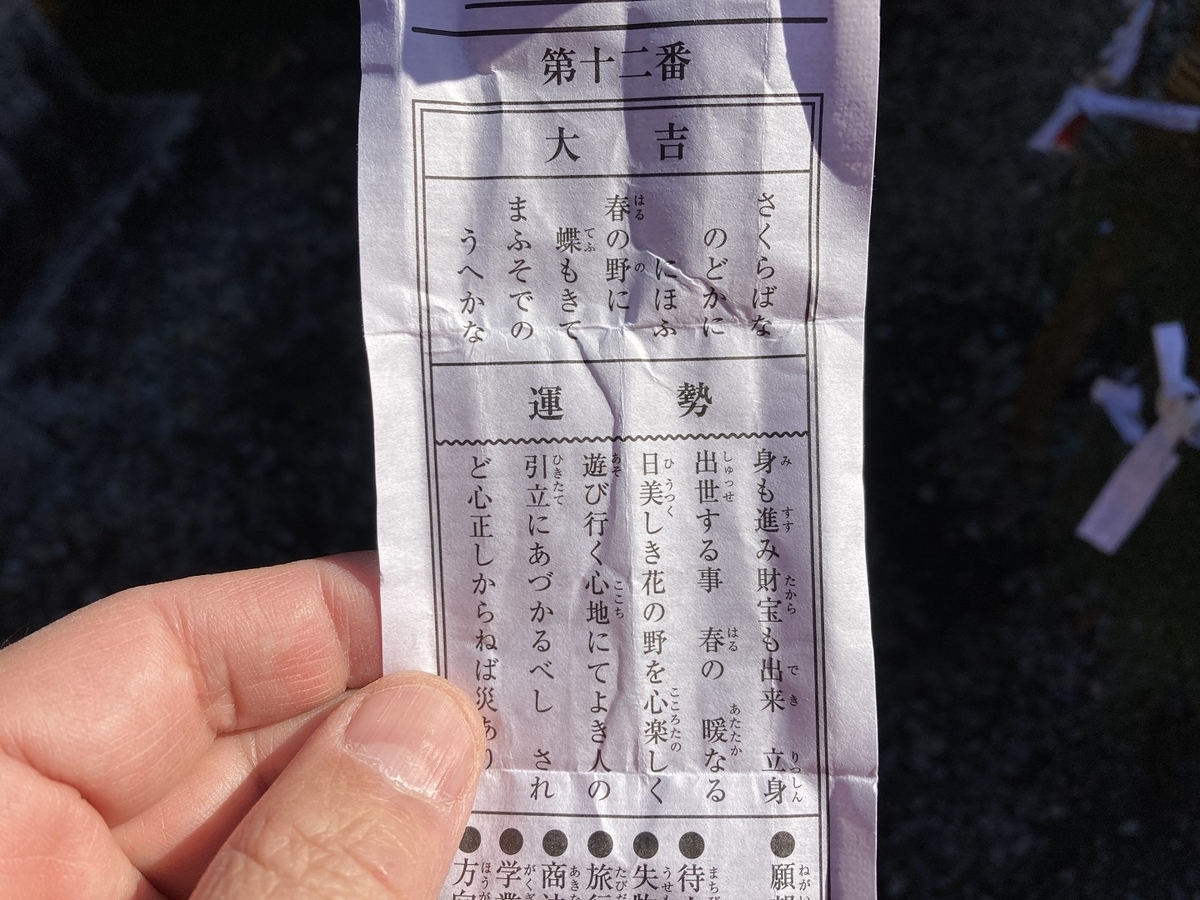 第十二番
大吉
さくらばな
のどかに
にほふ
春の野に
蝶もきて
まふそでの
うへかな
運勢
身も進み財宝も出来 立身
出世する事 春の 暖なる
日美しき花の野を心楽しく
遊び行く心地にてよき人の
引立にあづかるべし され
ど心正しからねば災あり
●願
●待
●失物
●旅行
●商
●学業
●方向